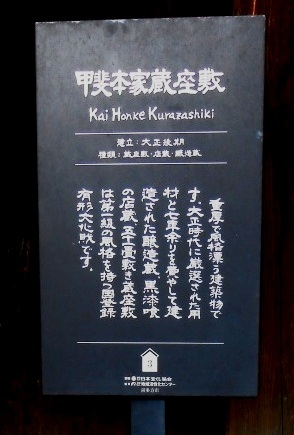 甲斐本家蔵座敷
Kai Honke Kurazashiki
建立：大正後期
種類：蔵座敷・店蔵・醸造蔵
重厚で風格漂う建築物で
す。大正時代に厳選された用
材と七年余りを費やして建
造された醸造蔵、黒漆喰
の店蔵、五十一畳敷き蔵座敷
は第一級の風格を持つ国登録
有形文化財です。
3
喜多方市